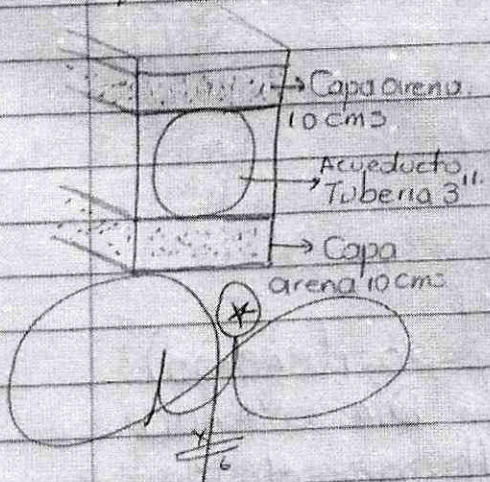 Capa arena.
10 cms
Acueducto
Tuberia 3"
Capa
arena 10 cms